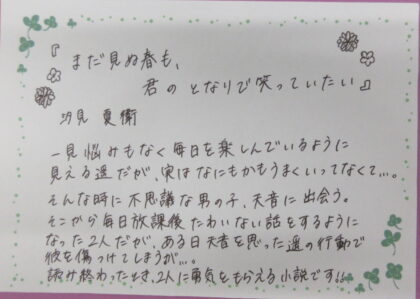 『まだ見ぬ春も、
君のとなりで笑っていたい』
汐見 夏衛
一見悩みもなく毎日を楽しんでいるように
見える遥だが、実はなにもかもうまくいってなくて…。
そんな時に不思議な男の子、天音に出会う。
そこから毎日放課後たわいない話をするように
なった2人だが、ある日天音を思った遥の行動で
彼を傷つけてしまうが…。
読み終わったとき、2人に勇気をもらえる小説です!!